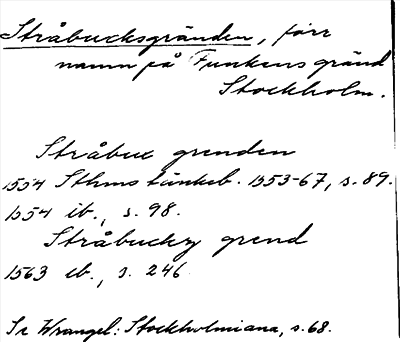 Stråbucksgränden, förr
namn på Funkens gränd
Stockholm.
Stråbuc grenden
1554 Sthms tänkeb. 1553-67, s. 89.
1554 ib., s. 98.
Stråbuckz grend
1563 ib., s. 246
Se Wrangel: Stockholmiana, s. 68.